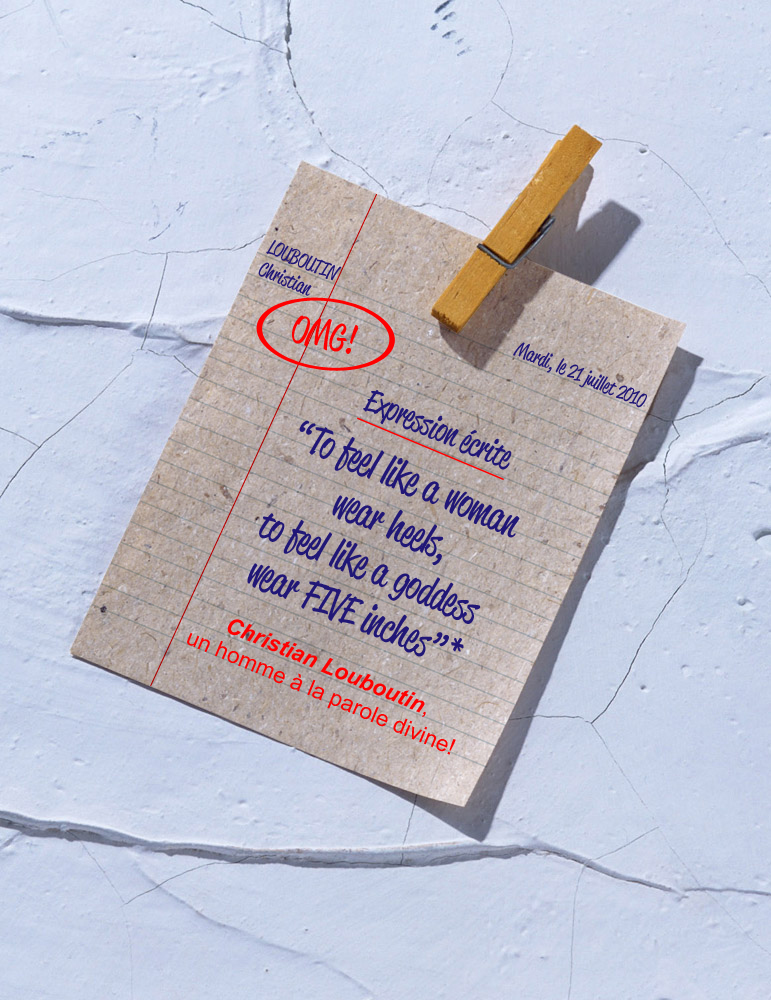 LOUBOUTIN
Christian
OMG!
Mardi, le 21 juillet 2010
Expression écrite
“To feel like a woman
wear heels,
to feel like a goddess
wear FIVE inches”*
Christian Louboutin,
un homme à la parole divine!